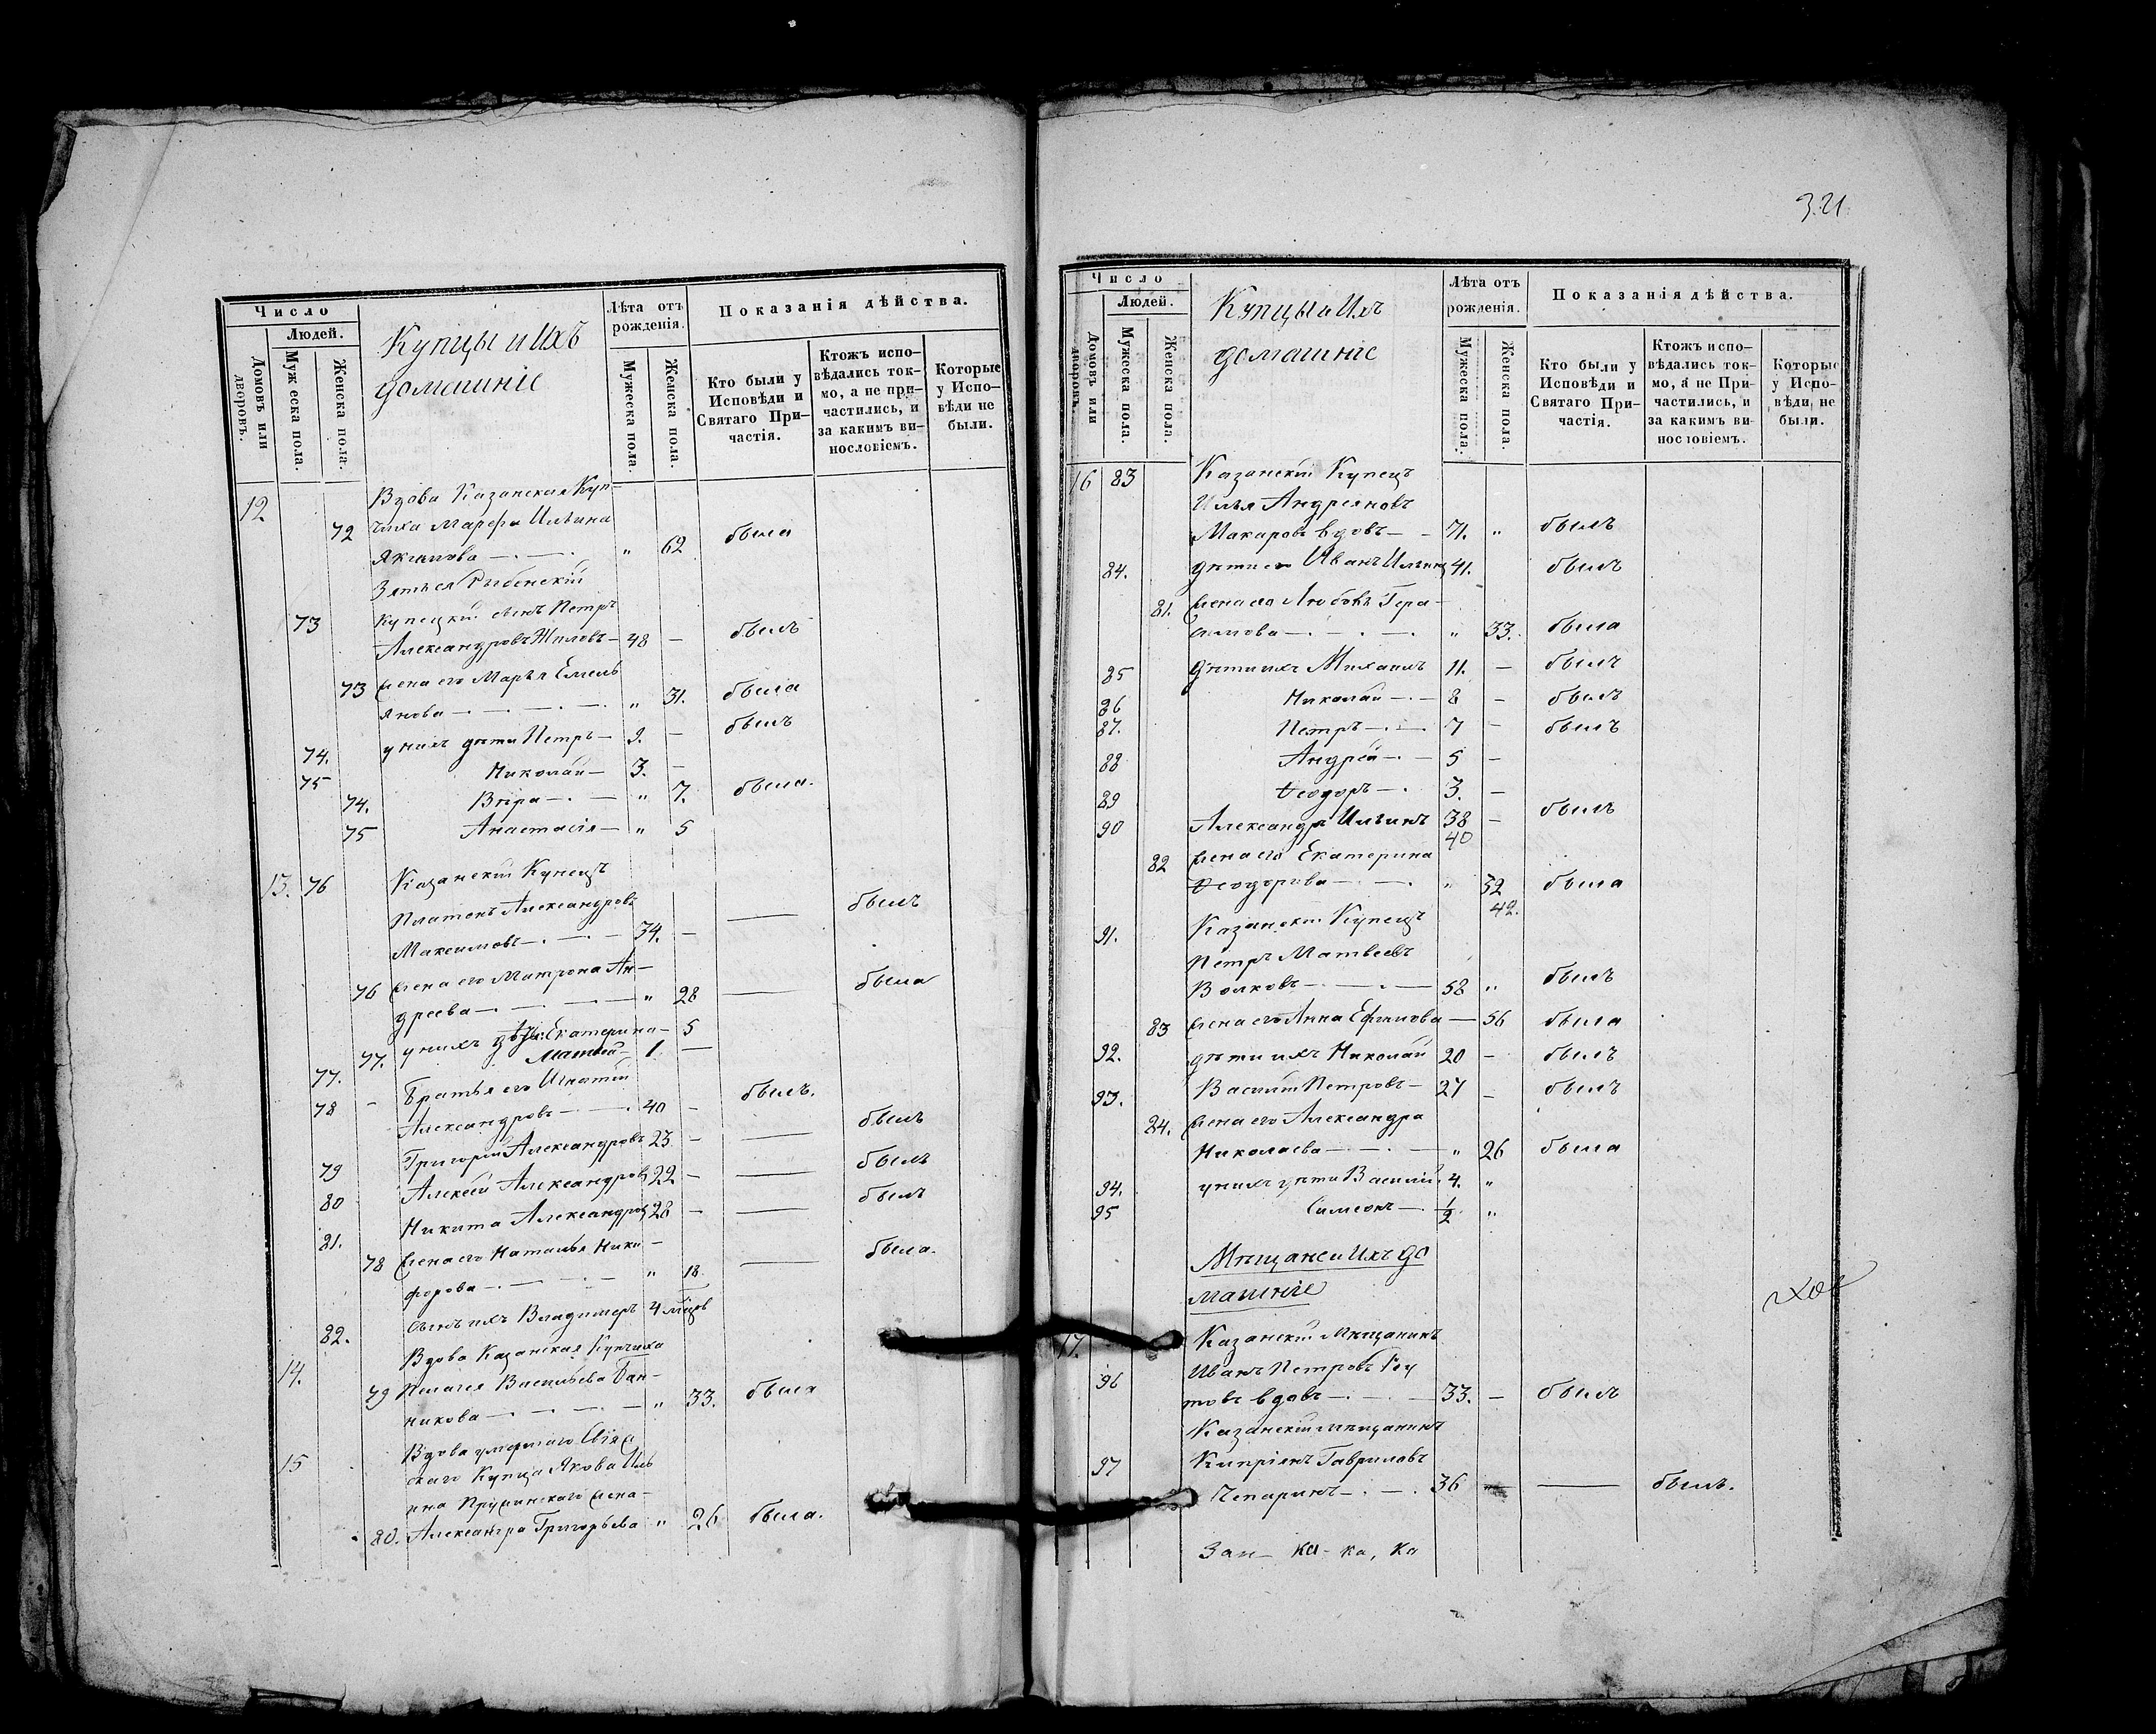 Число
Людей.
Домовъ или дворовъ.
Мужеска пола.
Женска пола.
Купцы и Ихъ
домашніе
Лѣта отъ рожденія.
Мужеска пола.
Женска пола.
Показанія дѣйства.
Кто были у Исповѣди и Святаго Причастія.
Ктожъ исповѣдались токмо, а не причастились, и за какимъ винословіемъ.
Которые у Исповѣди не были.
12 Вдова Казанская Куп-
72 чиха Марфа Ильина
Якимова „ 62 была
Зятья Рыбенскій
73 Купецкій сынъ Петръ
Александровъ Жиловъ 48 — былъ
73 Жена его Марья Емель
янова „ 31. была
74. у нихъ дѣти Петръ 9. — былъ
75 Николай 3. —
74. Вѣра „ 7. была.
75 Анастасія „ 5
13. 76 Казанскій Купецъ
Платонъ Александровъ
Максимовъ 34. — — былъ
76 Жена его Матрона Ан-
дреева „ 28 — была
77. у нихъ дѣти: Екатерина 5
77. Матвей 1. —
78 Братья его Игнатій
Александровъ 40 — былъ.
79 Григорій Александровъ 23 — — былъ
80 Алексей Александровъ 22 — — былъ
81. Никита Александровъ 28 — — былъ
78 Жена его Наталья Ники-
форова „ 18. — была.
82. сынъ ихъ Владимеръ 4 мѣцов
14. Вдова Казанская Купчиха
79 Пелагея Васильева Бан-
никова „ 33. была
15 Вдова умершаго Свіяж
скаго Купца Якова Иль
ина жена
80. Александра Григорьева „ 26 была.
321.
Число
Людей.
Домовъ или дворовъ.
Мужеска пола.
Женска пола.
Купцы и Ихъ
домашніе
Лѣта отъ рожденія.
Мужеска пола.
Женска пола.
Показанія дѣйства.
Кто были у Исповѣди и Святаго Причастія.
Ктожъ исповѣдались токмо, а не Причастились, и за какимъ винословіемъ.
Которые у Исповѣди не были.
16 83 Казанскій Купецъ
Илья Андреяновъ
Макаровъ вдовъ 71. „ былъ
84. дѣти его Иванъ Ильинъ 41. былъ
81. Жена его Любовь Гера-
симова „ 33. была
85 дѣти ихъ Михаилъ 11. — былъ
86 Николай 8 — былъ
87. Петръ 7 — былъ
88 Андрей 5 —
89 Ѳеодоръ 3. —
90 Александръ Ильинъ 38 — былъ
40
82 Жена его Екатерина
Ѳеодорова „ 32 была
42.
91. Казанскій Купецъ
Петръ Матвеевъ
Волковъ 58 „ былъ
83 Жена его Анна Ефимова — 56 была
92. дѣти ихъ Николай 20 — былъ
93. Василій Петровъ 27 — былъ
84. Жена его Александра
Николаева „ 26 была
94. у нихъ дѣти Василій 4. „
95 Симеонъ 1/2 „
Мѣщане и Ихъ до
машніе
17. Казанскій Мѣщанинъ
96 Иванъ Петровъ
товъ вдовъ 33. — былъ
Казанскій мѣщанинъ
97 Кипріянъ Гавриловъ
Чепаринъ 36 — — былъ.